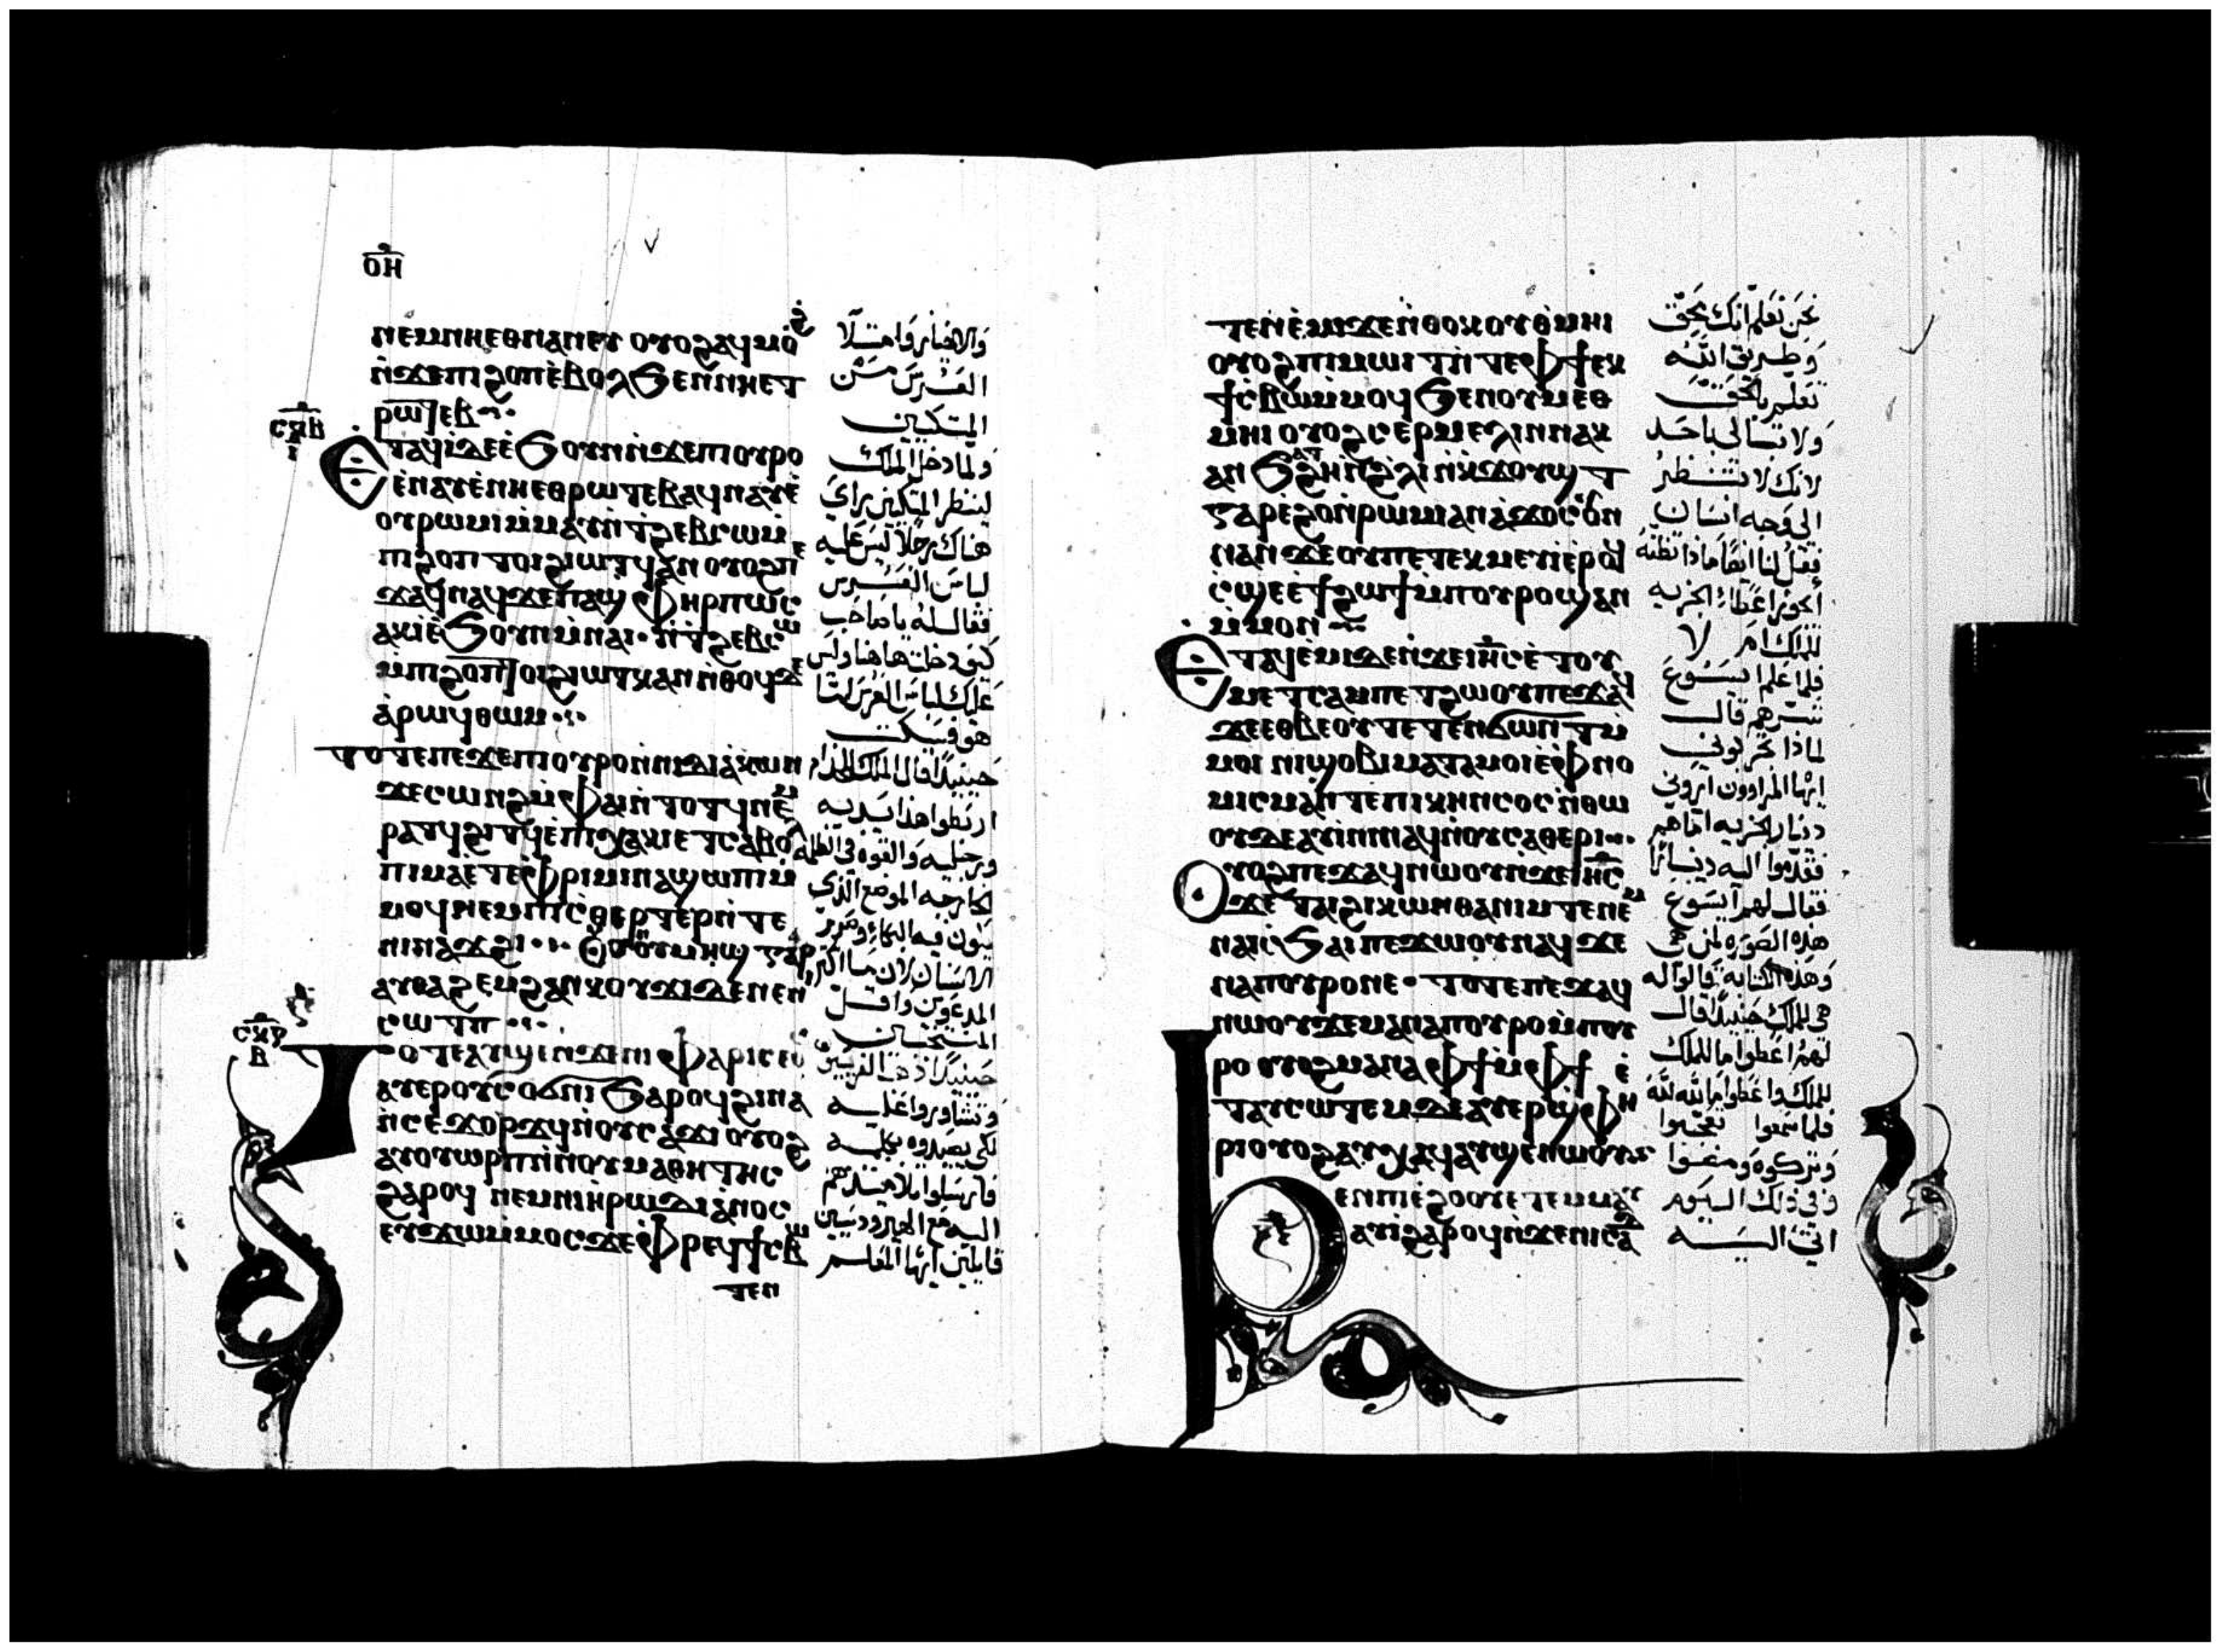 ⲟⲏ
ⲛⲉⲙⲛⲏⲉⲑⲛⲁⲛⲉⲩ ⲟⲩⲟϩⲁϥⲙⲟϩ
ⲛ̇ϫⲉⲡⲓϩⲟⲡⲉ̇ⲃⲟⲗϧⲉⲛⲛⲏⲉⲧ
ⲣⲱⲧⲉⲃ
ⲥⲝⲃ
ⲉⲧⲁϥⲓ̇ⲇⲉⲉ̇ϧⲟⲩⲛⲛ̇ϫⲉⲡⲟⲩⲣⲟ
ⲉ̇ⲛⲁⲩⲉ̇ⲛⲏⲉⲑⲣⲱⲧⲉⲃⲁϥⲛⲁⲩⲉ̇
ⲟⲩⲣⲱⲙⲓⲙ̇ⲙⲁⲩⲛ̇ⲧϩⲉⲃⲥⲱⲙ̇
ⲡⲓϩⲟⲡ ⲧⲟⲓϩⲓⲱⲧϥⲁⲛ ⲟⲩⲟϩⲡⲉ
ϫⲁϥⲛⲁϥϫⲉⲡⲁϣⲫⲏⲣⲡⲱⲥ
ⲁⲕⲓ̇ⲉ̇ϧⲟⲩⲛⲙ̇ⲛⲁⲓ ⲛ̇ⲧϩⲉⲃⲥⲱ
ⲙ̇ⲡⲓϩⲟⲡⲧⲟⲓϩⲓⲱⲧⲕⲁⲛ ⲛ̇ⲑⲟϥⲇⲉ
ⲁ̇ⲣⲱϥⲑⲱⲙ
ⲧⲟⲧⲉⲡⲉϫⲉⲡⲟⲩⲣⲟⲛ̇ⲛⲓⲇⲓⲁ̇ⲕⲱⲛ
ϫⲉⲥⲱⲛϩⲙ̇ⲫⲁⲓⲛ̇ⲧⲟⲧϥⲛⲉⲙ
ⲣⲁⲧϥϩⲓⲧϥⲉ̇ⲡⲓⲭⲁⲕⲓⲉⲧⲥⲁⲃⲟⲗ
ⲡⲓⲙⲁⲉ̇ⲧⲉⲫⲣⲓⲙⲓⲛⲁϣⲱⲡⲓⲙ̇
ⲙⲟϥⲛⲉⲙⲡⲓⲥ̇ⲑⲉⲣⲧⲉⲣⲛ̇ⲧⲉ
ⲛⲓⲛⲁϫϩⲓ ⲟⲩⲟⲛⲟⲩⲙⲏϣ ⲅⲁⲣ
ⲁⲩⲑⲁϩⲉⲙϩⲁⲛⲕⲟⲩϫⲓⲇⲉⲛⲉⲛ
ⲥⲱⲧⲡ
ⲥⲝⲅ
ⲃ
ⲧⲟⲧⲉⲁⲩϣⲉⲛϫⲉⲛⲓⲫⲁⲣⲓⲥⲉⲟⲥ
ⲁⲩⲉⲣⲟⲩⲥⲟϭⲛⲓϧⲁⲣⲟϥϩⲓⲛⲁ
ⲛ̇ⲥⲉϫⲟⲣϫϥⲛ̇ⲟⲩⲥⲁϫⲓ ⲟⲩⲟϩ
ⲁⲩⲟⲩⲱⲣⲡⲛ̇ⲛⲟⲩⲙⲁⲑⲏⲧⲏⲥ
ϩⲁⲣⲟϥ ⲛⲉⲙⲛⲓⲏ̇ⲣⲱⲇⲓⲁ̇ⲛⲟⲥ
ⲉⲩϫⲱⲙ̇ⲙⲟⲥϫⲉⲫⲣⲉϥϯⲥⲃⲱ
ⲧⲉⲛ
والاخيار وامتلا
العُرس من
المتكيين
ولما دخل الملك
لينظر المتكين راي
هناك رجلا ليس عليه
لباس العُرس
فقال له يا صاحب
كيف دخلت هاهنا وليس
عليك لباس العرس امّا
هو فسكت
حينيذًا قال الملك للخدام
اربطوا هذا بيديه
ورجليه والقوه في الظلمه
الخارجه الموضع الذي
يكون فيه البكاء وصرير
الاسنان لان ما اكثر
المدعوين واقل
المنتخبين
حينيذًا ذهب الفريسيين
وتشاوروا عليه
لكي يصيدوه بكلمه
فارسلوا تلاميذهم
اليه مع الهيروديسيين
قايلين ايها المعلم
ⲧⲉⲛⲉ̇ⲙⲓϫⲉⲛ̇ⲑⲟⲕⲟⲩⲑ̇ⲙⲏⲓ
ⲟⲩⲟϩⲡⲓⲙⲱⲓⲧⲛ̇ⲧⲉⲫϯⲉⲕ
ϯⲥ̇ⲃⲱⲙ̇ⲙⲟϥ ϧⲉⲛⲟⲩⲙⲉⲑ
ⲙⲏⲓ ⲟⲩⲟϩⲥⲉⲣⲙⲉⲗⲓⲛⲛⲁⲕ
ⲁⲛ ϧⲁⲧϩⲏⲛ̇ϩ̇ⲗⲓ ⲛ̇ⲕϫⲟⲩϣⲧ
ⲅⲁⲣⲉ̇ϩⲟⲛ̇ⲣⲱⲙⲓⲁⲛ ⲁ̇ϫⲟⲥⲟⲩⲛ
ⲛⲁⲛ ϫⲉⲟⲩⲡⲉⲧⲉⲕⲙⲉⲩⲓ̇ⲉ̇ⲣⲟϥ
ⲥ̇ϣⲉⲉ̇ϯϩⲱϯⲙ̇ⲡⲟⲩⲣⲟϣⲁⲛ
ⲙ̇ⲙⲟⲛ
ⲉⲧⲁϥⲉ̇ⲙⲓⲇⲉⲛ̇ϫⲉⲓⲏⲥⲉ̇ⲧⲟⲩ
ⲙⲉⲧⲥⲁⲙⲡⲉⲧϩⲱⲟⲩⲡⲉϫⲁϥ
ϫⲉⲉⲑⲃⲉⲟⲩⲧⲉⲧⲉⲛϭⲱⲛⲧⲙ̇
ⲙⲟⲓ ⲛⲓϣⲟⲃⲓⲙⲁⲧⲁⲙⲟⲓⲉ̇ⲫⲛⲟ
ⲙⲓⲥⲙⲁⲛ̇ⲧⲉⲡⲓⲕⲏⲛⲥⲟⲥ ⲛ̇ⲑⲱ
ⲟⲩⲇⲉⲁⲩⲓ̇ⲛⲓⲛⲁϥⲛ̇ⲟⲩⲥⲁⲑⲉⲣⲓ
ⲟⲩⲟϩⲡⲉϫⲁϥⲛⲱⲟⲩⲛ̇ϫⲉⲓⲏⲥ
ϫⲉ ⲧⲁⲓϩⲓⲕⲱⲛⲑⲁⲛⲓⲙⲧⲉⲛⲉⲙ
ⲛⲁⲓⲥ̇ϧⲁⲓ ⲡⲉϫⲱⲟⲩⲛⲁϥ ϫⲉ
ⲛⲁⲡⲟⲩⲣⲟⲛⲉ ⲧⲟⲧⲉⲡⲉϫⲁϥ
ⲛⲱⲟⲩϫⲉⲙⲁⲛⲁⲡⲟⲩⲣⲟⲙ̇ⲡⲟⲩ
ⲣⲟ ⲟⲩⲟϩⲙⲁⲛⲁⲫϯⲙ̇ⲫϯ ⲉ̇
ⲧⲁⲩⲥⲱⲧⲉⲙⲇⲉⲁⲩⲉⲣϣⲫⲏ
ⲣⲓⲟⲩⲟϩⲁⲩⲭⲁϥⲁⲩϣⲉⲛⲱⲟⲩ
ϧⲉⲛⲡⲓⲉ̇ϩⲟⲟⲩⲉⲧⲉⲙⲙⲁⲩ
ⲁⲩⲓ̇ϩⲁⲣⲟϥⲛ̇ϫⲉⲛⲓⲥⲁ
نحن نعلم انك بحق
وطريق الله
تعلم بالحق
ولا تبالى باحد
لانك لا تنظر
الى وجه انسان
فقل لنا ايضًا ماذا تظنه
ايجوز اعطاء الجزيه
للملك ام لا
فلما علم ايسوع
شرهم قال
لماذا تجربوني
ايها المراوون اروني
دينار الجزيه امّا هم
فقدّموا اليه دينارًا
فقال لهم ايسوع
هذه الصوره لمن هى
وهذه الكتابه قالوا له
هى للملك حينيذًا قال
لهم اعطوا ما للملك
للملك واعطوا ما لله لله
فلما سمعوا تعجبوا
وتركوه ومضوا
وفي ذلك اليوم
اتى اليه